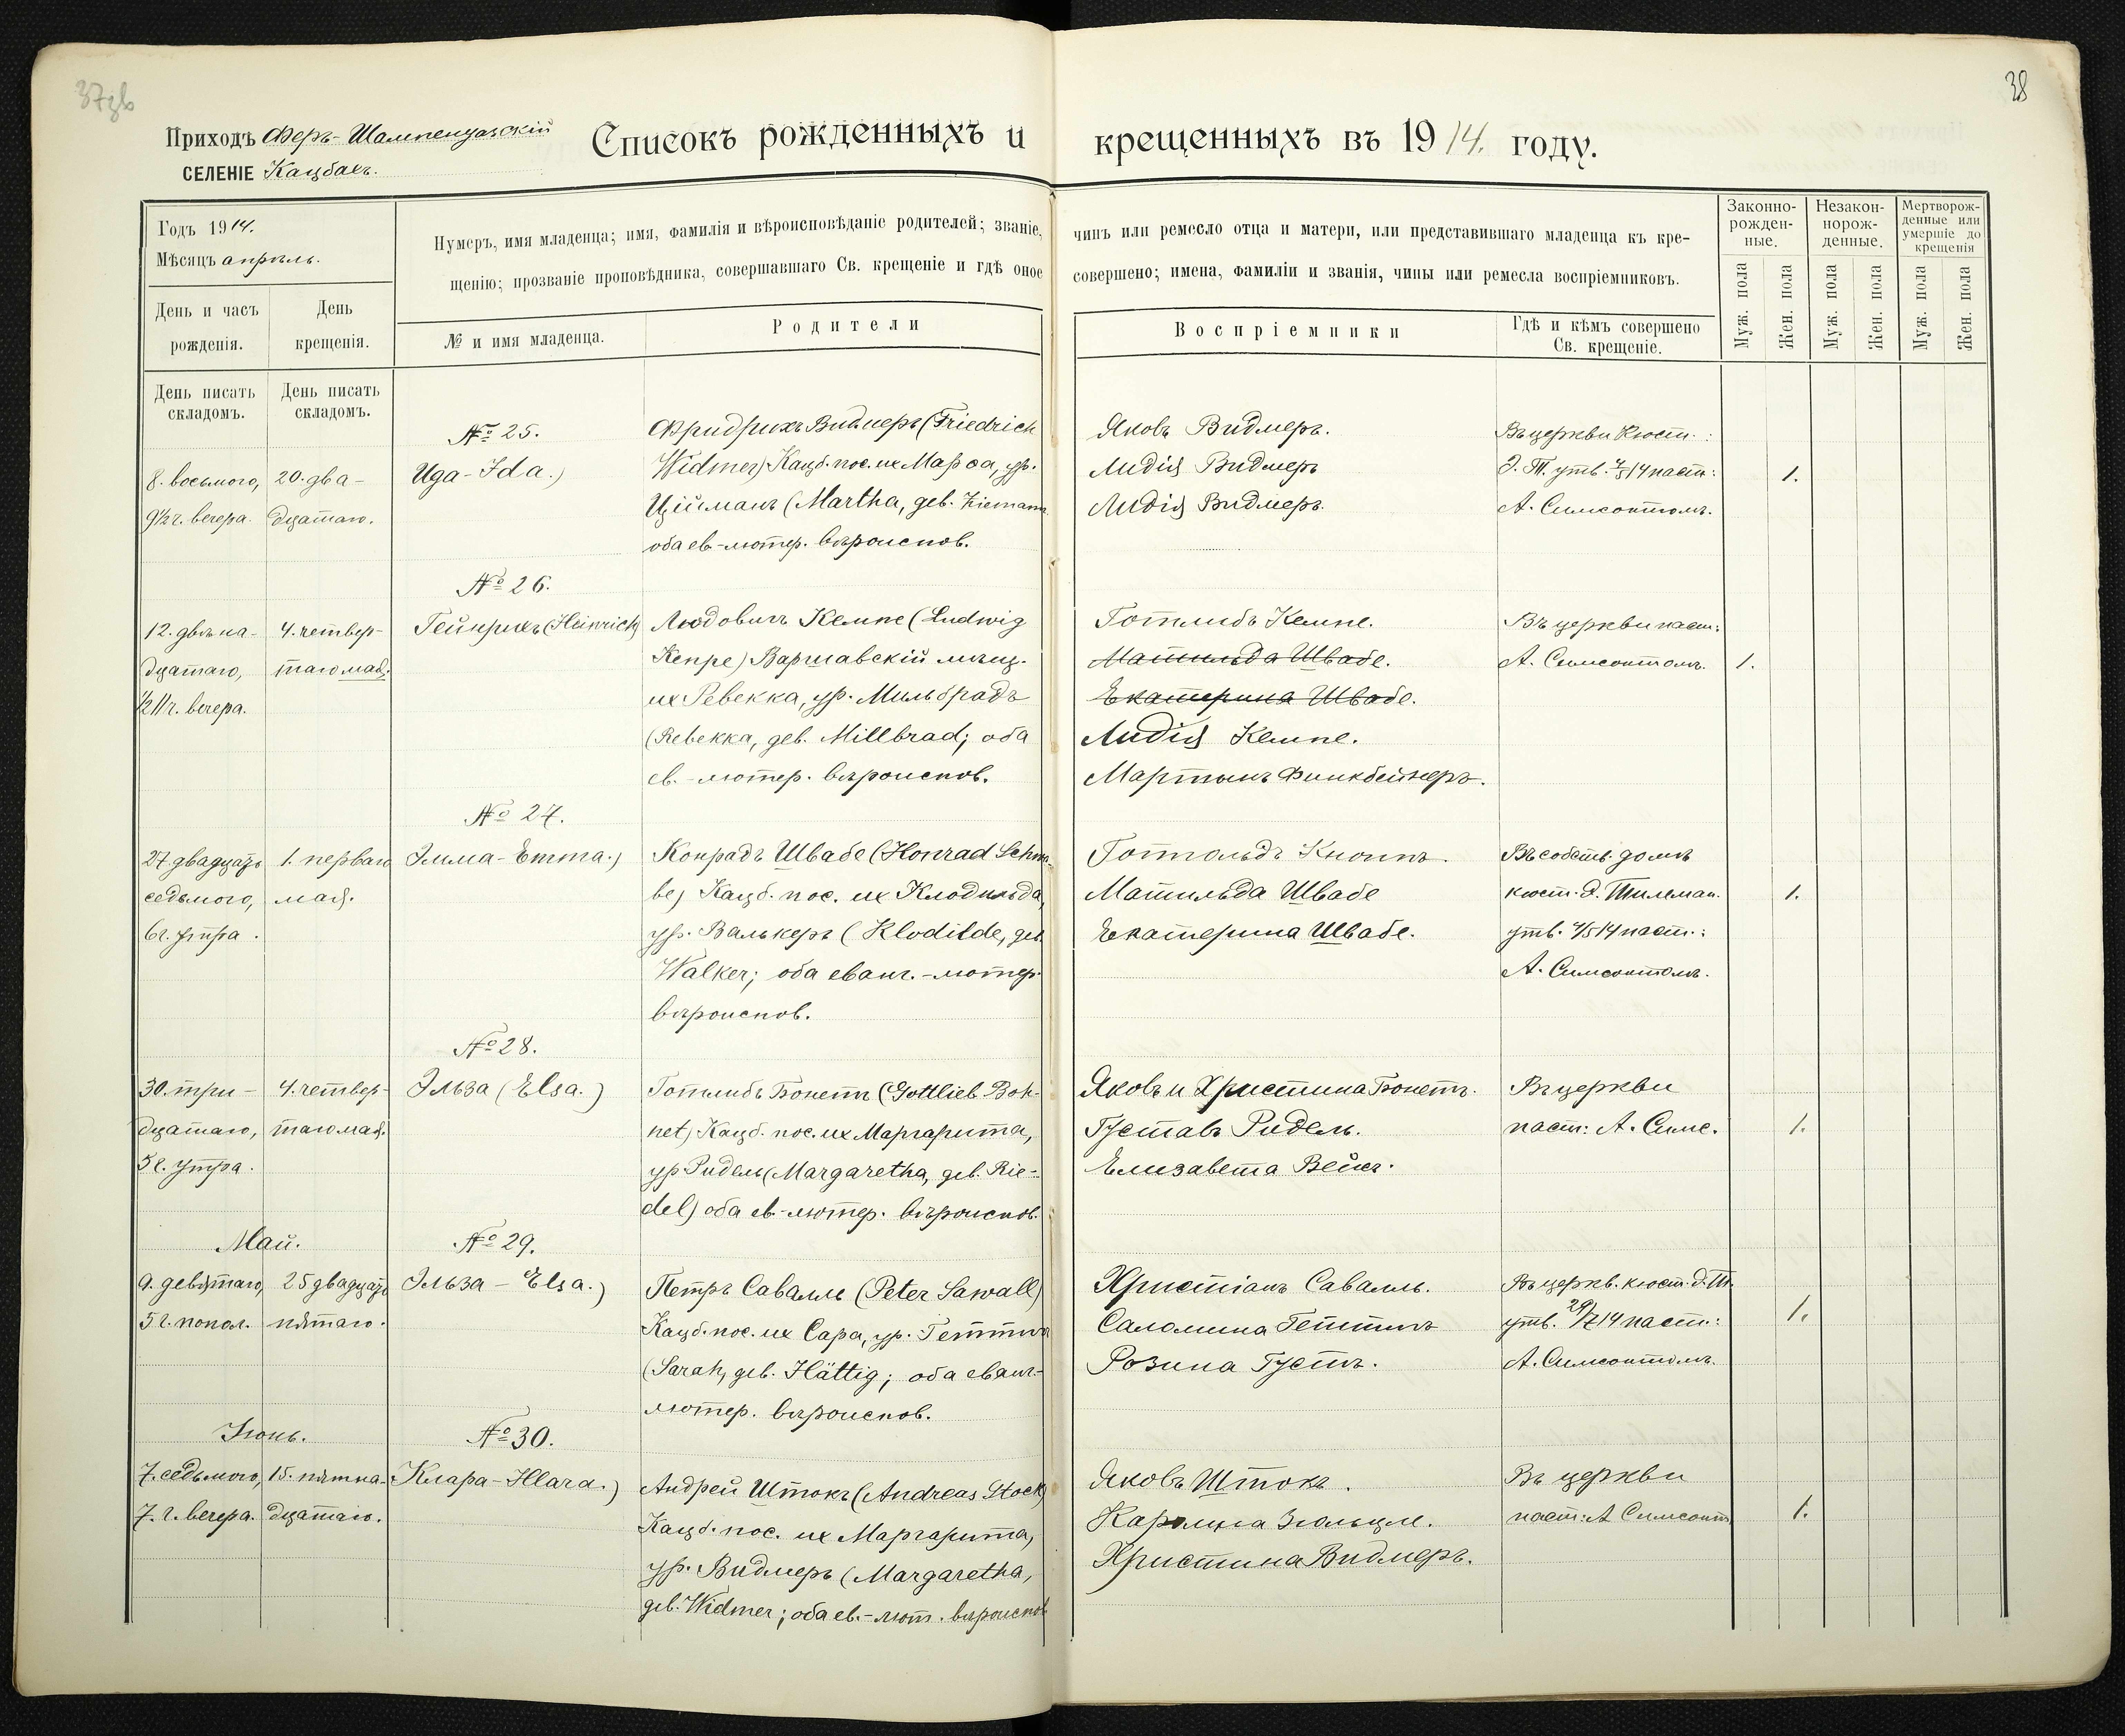 37об
38
Приходъ Феръ-Шампенуазскій
СЕЛЕНІЕ Кацбахъ.
Списокъ рожденныхъ и крещенныхъ въ 1914. году.
Годъ 1914.
Мѣсяцъ апрѣль.
Нумеръ, имя младенца; имя, фамилія и вѣроисповѣданіе родителей; званіе, чинъ или ремесло отца и матери, или представившаго младенца къ кре-
щенію; прозваніе проповѣдника, совершавшаго Св. крещеніе и гдѣ оное совершено; имена, фамиліи и званія, чины или ремесла воспріемниковъ.
День и часъ
рожденія.
День
крещенія.
№ и имя младенца.
Родители
Воспріемники
Гдѣ и кѣмъ совершено
Св. крещеніе.
Законно-
рожден-
ные.
Незакон-
норож-
денные.
Мертворож-
денные или
умершіе до
крещенія
Муж. пола
Жен. пола
Муж. пола
Жен. пола
Муж. пола
Жен. пола
День писать
складомъ.
День писать
складомъ.
№ 25.
8. восьмого,
9½ ч. вечера.
20. два-
дцатаго.
Ида-Ida.)
Фридрихъ Видмеръ (Friedrich
Widmer) Кацб. пос. их Марѳа, ур.
Цііманъ (Martha, geb. Ziemann
оба ев.-лютер. вѣроиспов.
Яковъ Видмеръ.
Лидія Видмеръ
Лидія Видмеръ.
Въ церкви Кюст.:
Э. Т. утв. 4/5 14 паст:
А. Симсонтомъ.
1.
№ 26.
12. двѣна-
дцатаго,
½11 ч. вечера.
4. четвер-
таго мая.
Гейнрихъ (Heinrich)
Людовигъ Кемпе (Ludwig
Кепре) Варшавскій мѣщ.
их Ревекка, ур. Мильбрадъ
(Rebekka, geb. Millbrad; оба
ев.-лютер. вѣроиспов.
Готлибъ Кемпе.
Матильда Швабе.
Екатерина Швабе.
Лидія Кемпе.
Мартынъ Финкбейнеръ.
Въ церкви паст:
А. Симсонтомъ.
1.
№ 27.
27. двадцать
седьмого,
6 ч. утра.
1. перваго
мая.
Эмма-Emma.)
Конрадъ Швабе (Konrad Schwa-
be) Кацб. пос. их Клодильда,
ур. Валькеръ (Klodilde, geb.
Walker; оба еванг.-лютер.
вѣроиспов.
Готтольдъ Кноппъ.
Матильда Швабе
Екатерина Швабе.
Въ собств. домѣ
кюст. Э. Тилеман.
утв. 4/5 14 паст.:
А. Симсонтомъ.
1.
№ 28.
30. три-
дцатаго,
5 ч. утра.
4. четвер-
таго мая.
Эльза (Elsa.)
Готлибъ Бонетъ (Gottlieb Boh-
net) Кацб. пос. их Маргарита,
ур. Ридель (Margaretha, geb. Rie-
del) оба ев.-лютер. вѣроиспов.
Яковъ и Христина Бонетъ.
Густавъ Ридель.
Елизавета Вейсъ.
Въ церкви
паст: А. Симс.
1.
Май.
№ 29.
9. девятаго,
5 ч. попол.
25 двадцать
пятаго.
Эльза - Elsa.)
Петръ Савалль (Peter Sawall)
Кацб. пос. их Сара, ур. Геттигъ
(Sarah, geb. Hättig; оба еванг.-
лютер. вѣроиспов.
Христіанъ Савалль.
Саломина Геттигъ
Розина Густъ.
Въ церкв. кюст. Э. Т.
утв. 29/7 14 паст:
А. Симсонтомъ.
1.
Іюнь.
№ 30.
7. седьмого,
7. ч. вечера.
15. пятна-
дцатаго.
Клара-Klara.)
Андрей Штокъ (Andreas Stock)
Кацб. пос. их Маргарита,
ур. Видмеръ (Margaretha,
geb. Widmer; оба ев.-лют. вѣроиспов.
Яковъ Штокъ.
Каролина Зюльцле.
Христина Видмеръ.
Въ церкви
паст: А Симсонт.
1.